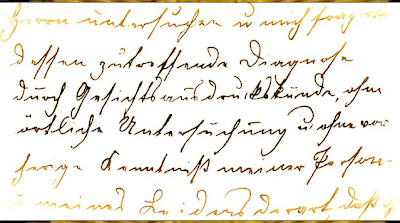 Herrn untersuchen u mich fragen
dessen zutreffende Diagnose
durch Gesichtsausdruckskunde, ohne
örtliche Untersuchung u. ohne vor
herige Kenntniß meiner Person
u meines Leidens derart, daß